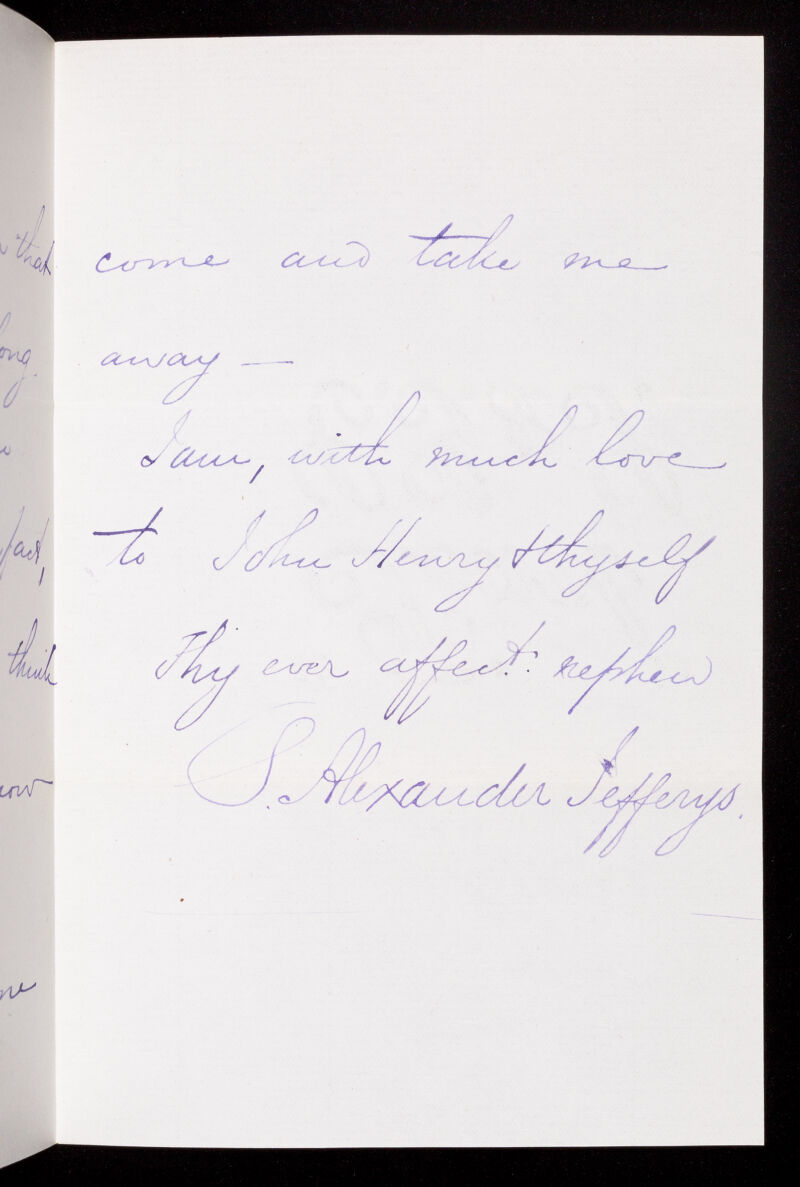 that
long.
fact,
think
come and take me
away —
I am, with much love
to John Henry & thyself
Thy ever affect. nephew
S. Alexander Jefferys.